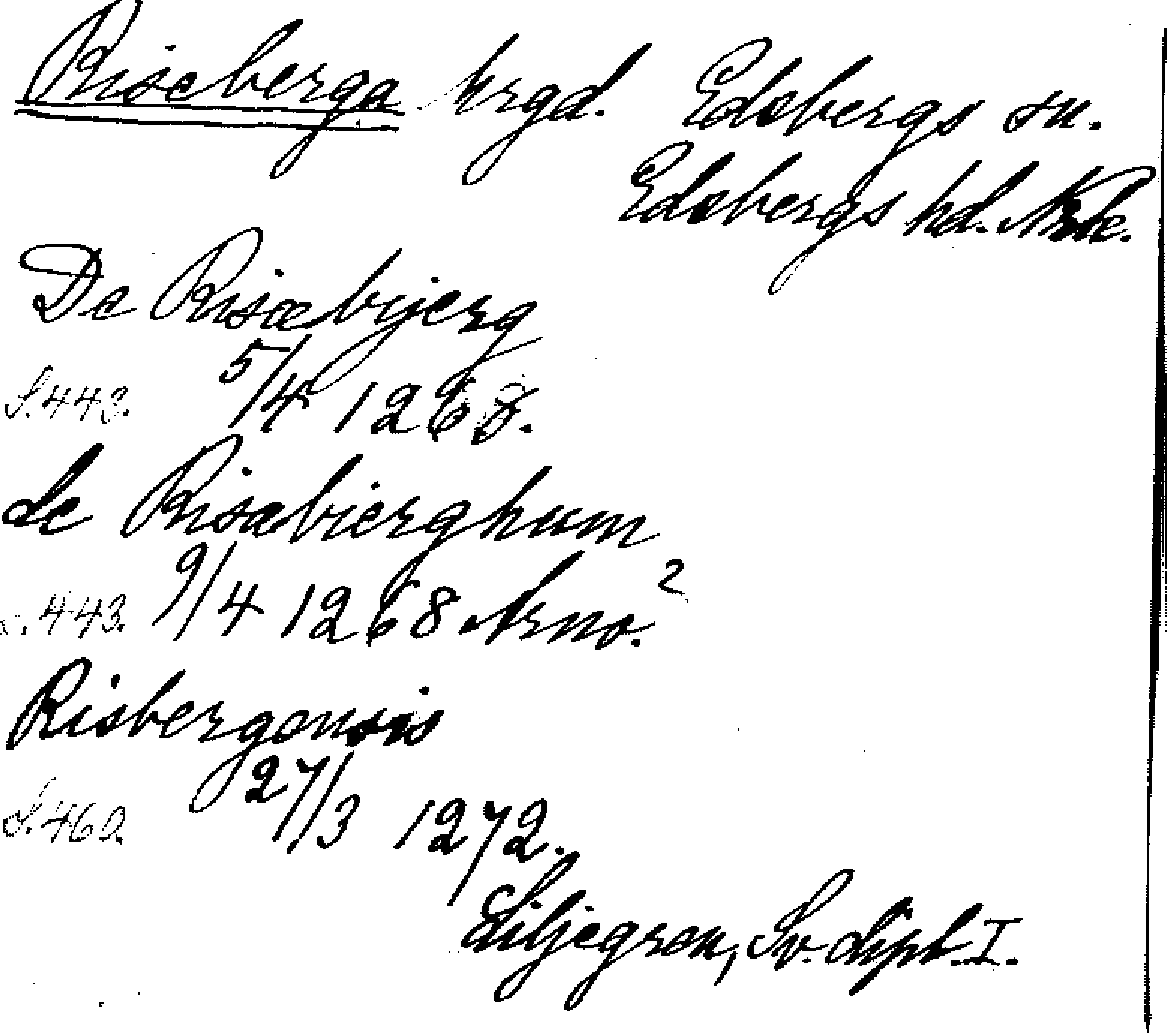 Riseberga hrgd. Edsbergs sn.
Edsbergs hd. Nrke.
De Risæbyerg
S. 443. 5/4 1268.
de Risæbierghum
s. 443. 9/4 1268 Arno.²
Risbergensis
S. 460. 27/3 1272.
Liljegren, Sv. dipl. I.